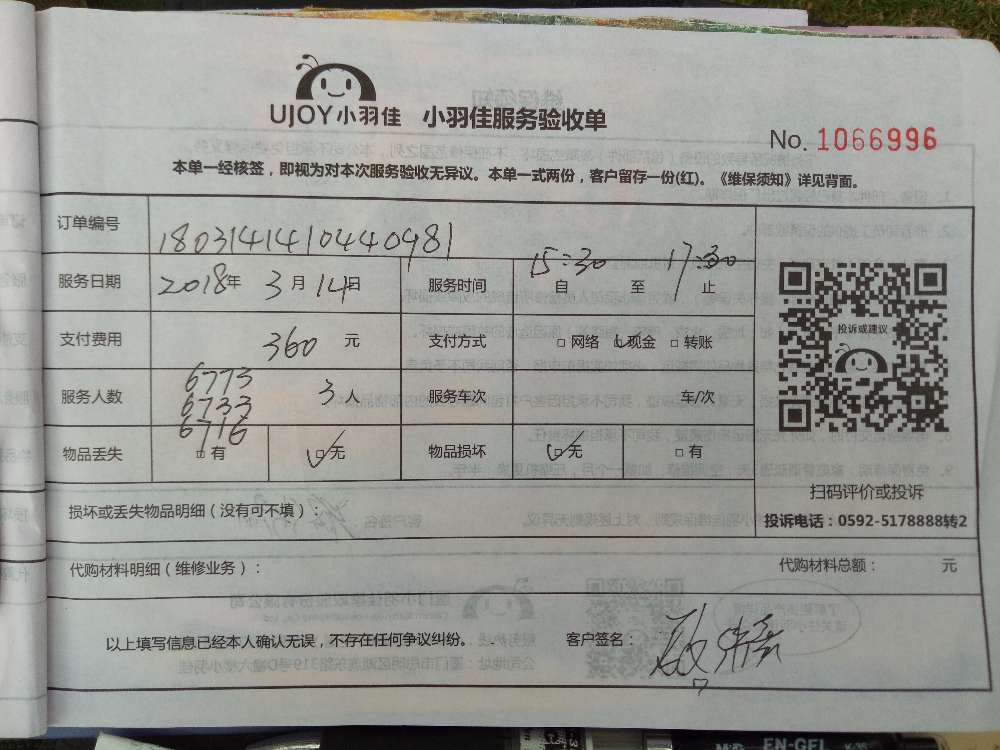 UJOY小羽佳 小羽佳服务验收单
No. 1066996
本单一经核签，即视为对本次服务验收无异议。本单一式两份，客户留存一份(红)。《维保须知》详见背面。
订单编号 1803141410440981
服务日期 2018年 3月 14日 服务时间 15:30 自 至 17:30 止
投诉或建议
支付费用 360 元 支付方式 □ 网络 ☑现金 □ 转账
服务人数 6773 6733 6716 3人 服务车次 车/次
物品丢失 □ 有 ☑无 物品损坏 ☑无 □ 有
扫码评价或投诉
损坏或丢失物品明细（没有可不填）：
投诉电话：0592-5178888转2
代购材料明细（维修业务）： 代购材料总额： 元
以上填写信息已经本人确认无误，不存在任何争议纠纷。 客户签名：
EN-GEL